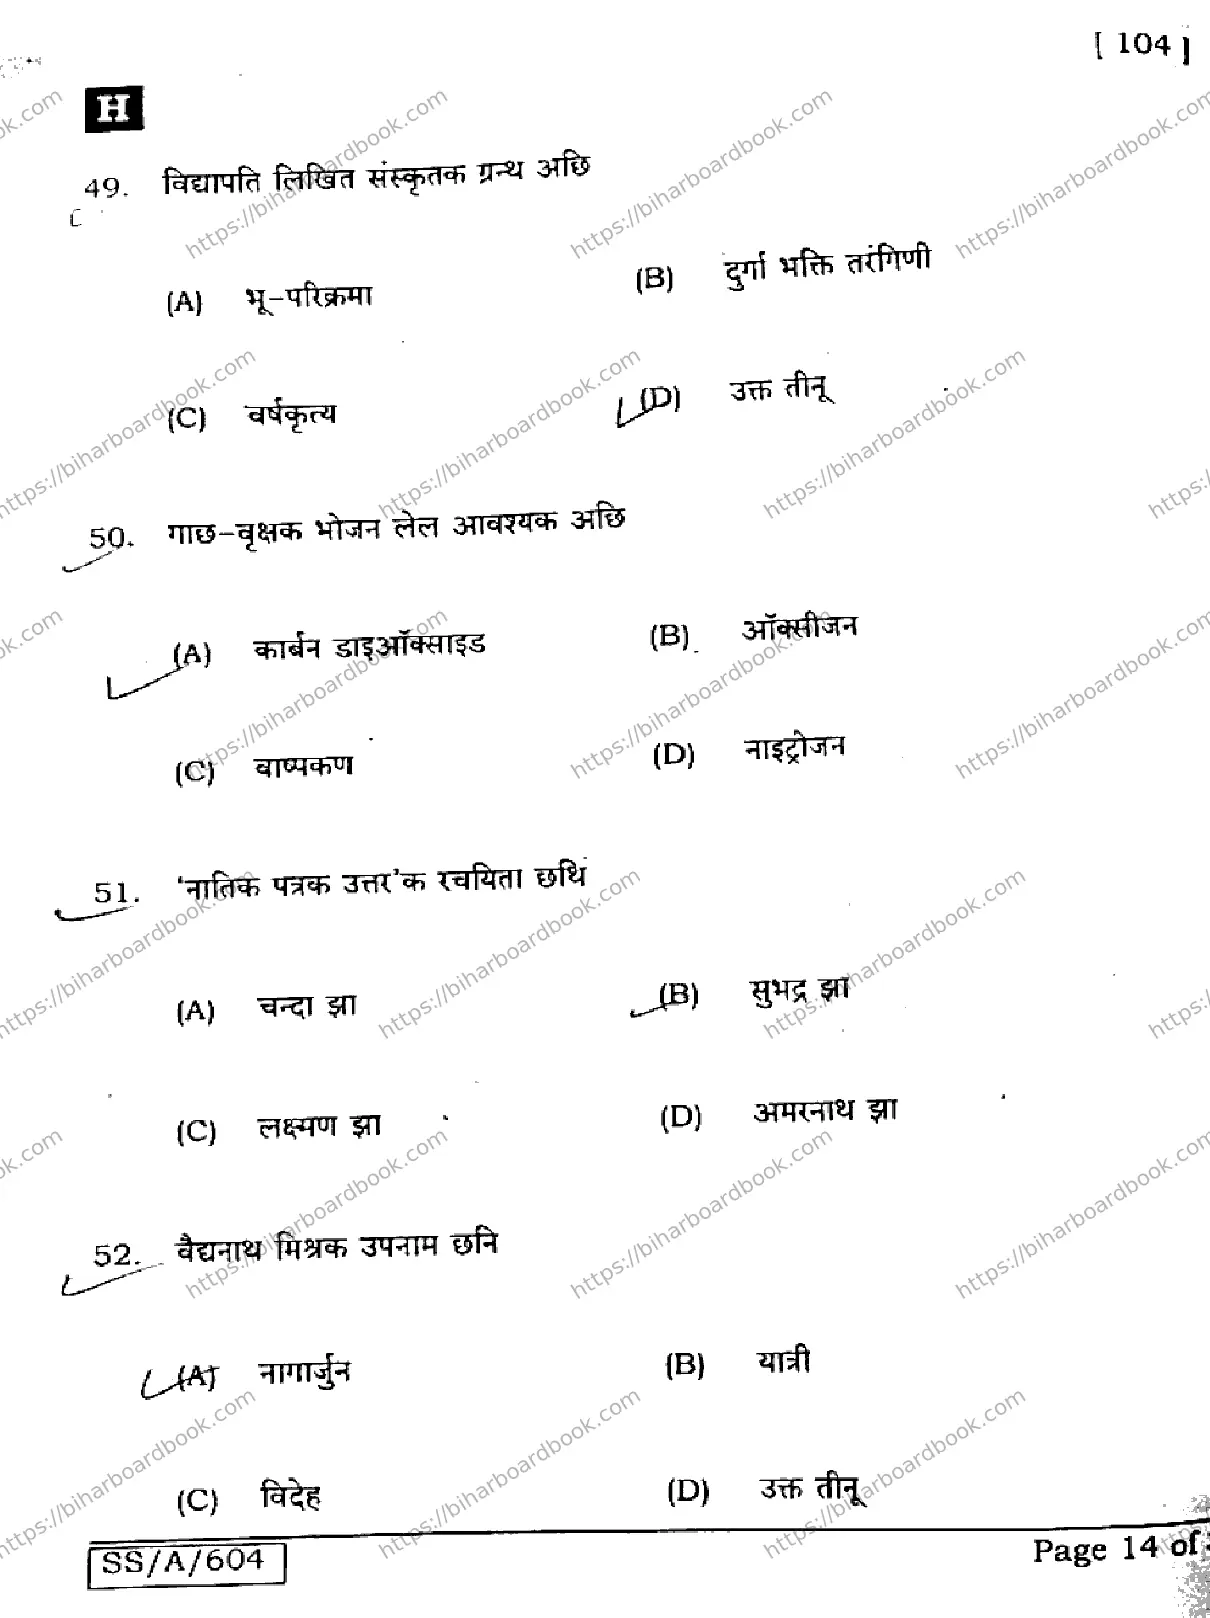 [ 104 ]
H
49. विद्यापति लिखित संस्कृतक ग्रन्थ अछि
(A) भू-परिक्रमा
(B) दुर्गा भक्ति तरंगिणी
(C) वर्षकृत्य
(D) उक्त तीनू
50. गाछ-वृक्षक भोजन लेल आवश्यक अछि
(A) कार्बन डाइऑक्साइड
(B) ऑक्सीजन
(C) वाष्पकण
(D) नाइट्रोजन
51. 'नातिक पत्रक उत्तर'क रचयिता छथि
(A) चन्दा झा
(B) सुभद्र झा
(C) लक्ष्मण झा
(D) अमरनाथ झा
52. वैद्यनाथ मिश्रक उपनाम छनि
(A) नागार्जुन
(B) यात्री
(C) विदेह
(D) उक्त तीनू
SS/A/604
Page 14 of
https://biharboardbook.com